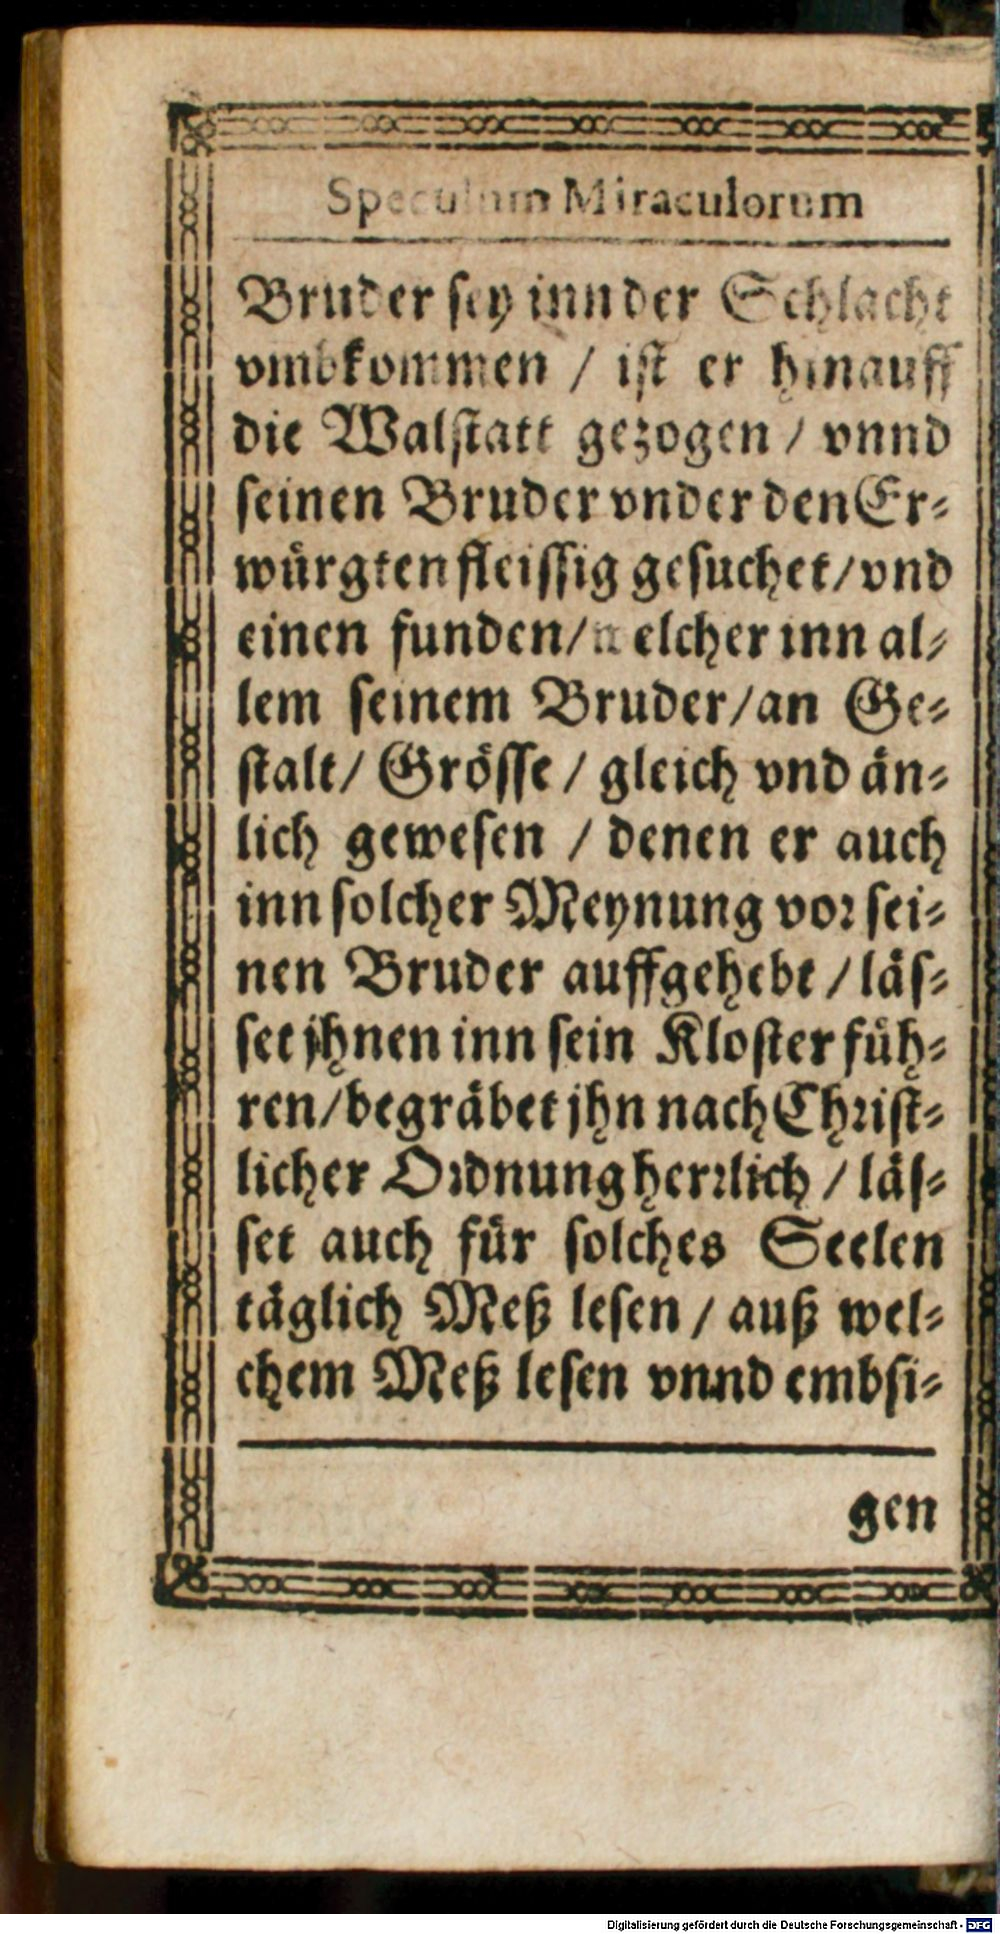 Speculum Miraculorum
Bruder sey inn der Schlacht
vmbkommen / ist er hinauff
die Walstatt gezogen / vnnd
seinen Bruder vnder den Er-
würgten fleissig gesuchet / vnd
einen funden / welcher inn al-
lem seinem Bruder / an Ge-
stalt / Grösse / gleich vnd än-
lich gewesen / denen er auch
inn solcher Meynung vor sei-
nen Bruder auffgehebt / läs-
set jhnen inn sein Kloster füh-
ren / begräbet jhn nach Christ-
licher Ordnung herrlich / läs-
set auch für solches Seelen
täglich Meß lesen / auß wel-
chem Meß lesen vnnd embsi-
gen
Digitalisierung gefördert durch die Deutsche Forschungsgemeinschaft - DFG